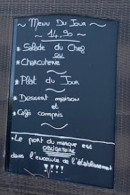 ~ Menu Du Jour ~
~ 14,90 ~
* Salade du Chef
ou
* Charcuterie
~
* Plat du Jour
~
* Dessert maison
et
* Café compris
Le port du masque est
OBLIGATOIRE
dans l'enceinte de l'établissement
!!!!